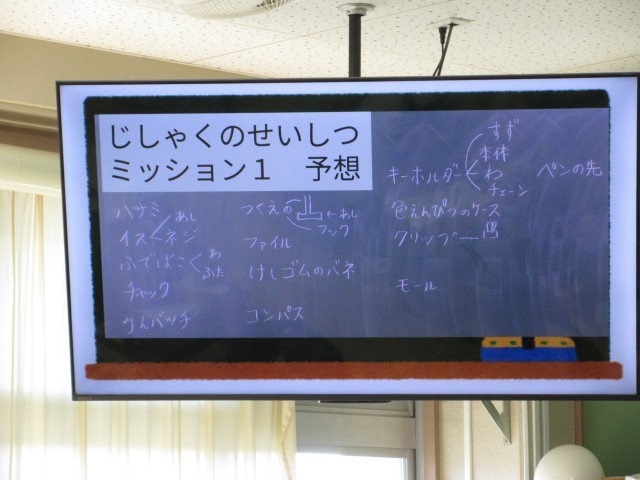 じしゃくのせいしつ
ミッション1　予想
ハサミ
イス あし
ネジ
ふでばこ わ
ふた
チャック
かんバッチ
つくえの ←あし
フック
ファイル
けしゴムのバネ
コンパス
キーホルダー すず
本体
わ
チェーン
ペンの先
色えんぴつのケース
クリップ
モール